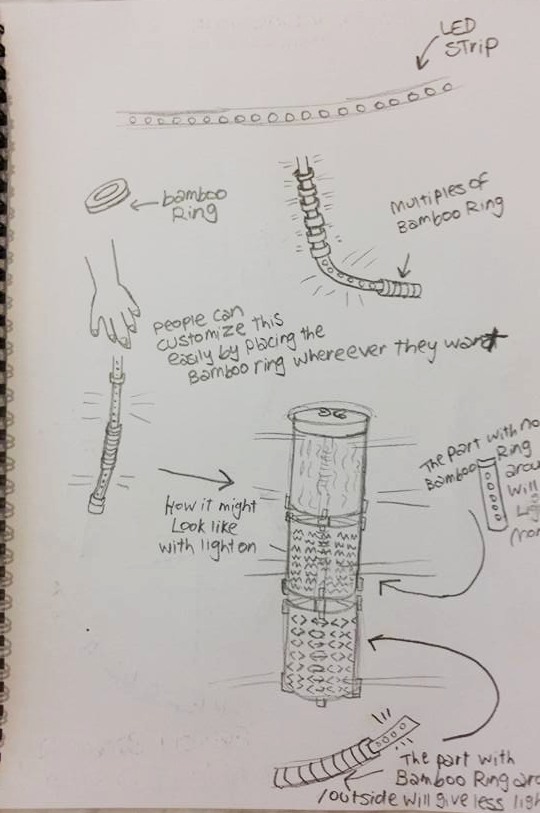 LED
STrip
bamboo
Ring
Multiples of
Bamboo Ring
People can
customize this
easily by placing the
Bamboo ring whereever they want
How it might
Look like
with light on
The part with no
Bamboo Ring
arou
will
Lig
The part with
Bamboo Ring aro
/outside will give less ligh